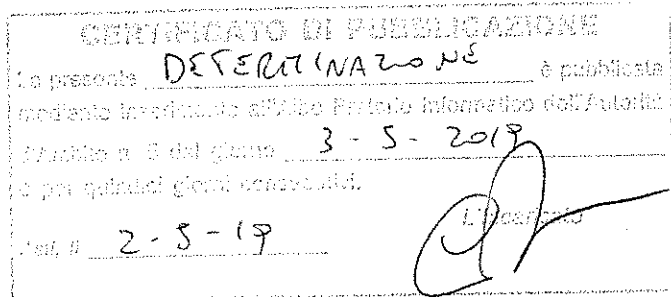 CERTIFICATO DI PUBBLICAZIONE
La presente DETERMINAZIONE è pubblicata
mediante inserimento all'Albo Pretorio informatico dell'Autorità
d'Ambito n. 6 dal giorno 3-5-2019
e per quindici giorni consecutivi.
L'Incaricato
li 2-5-19